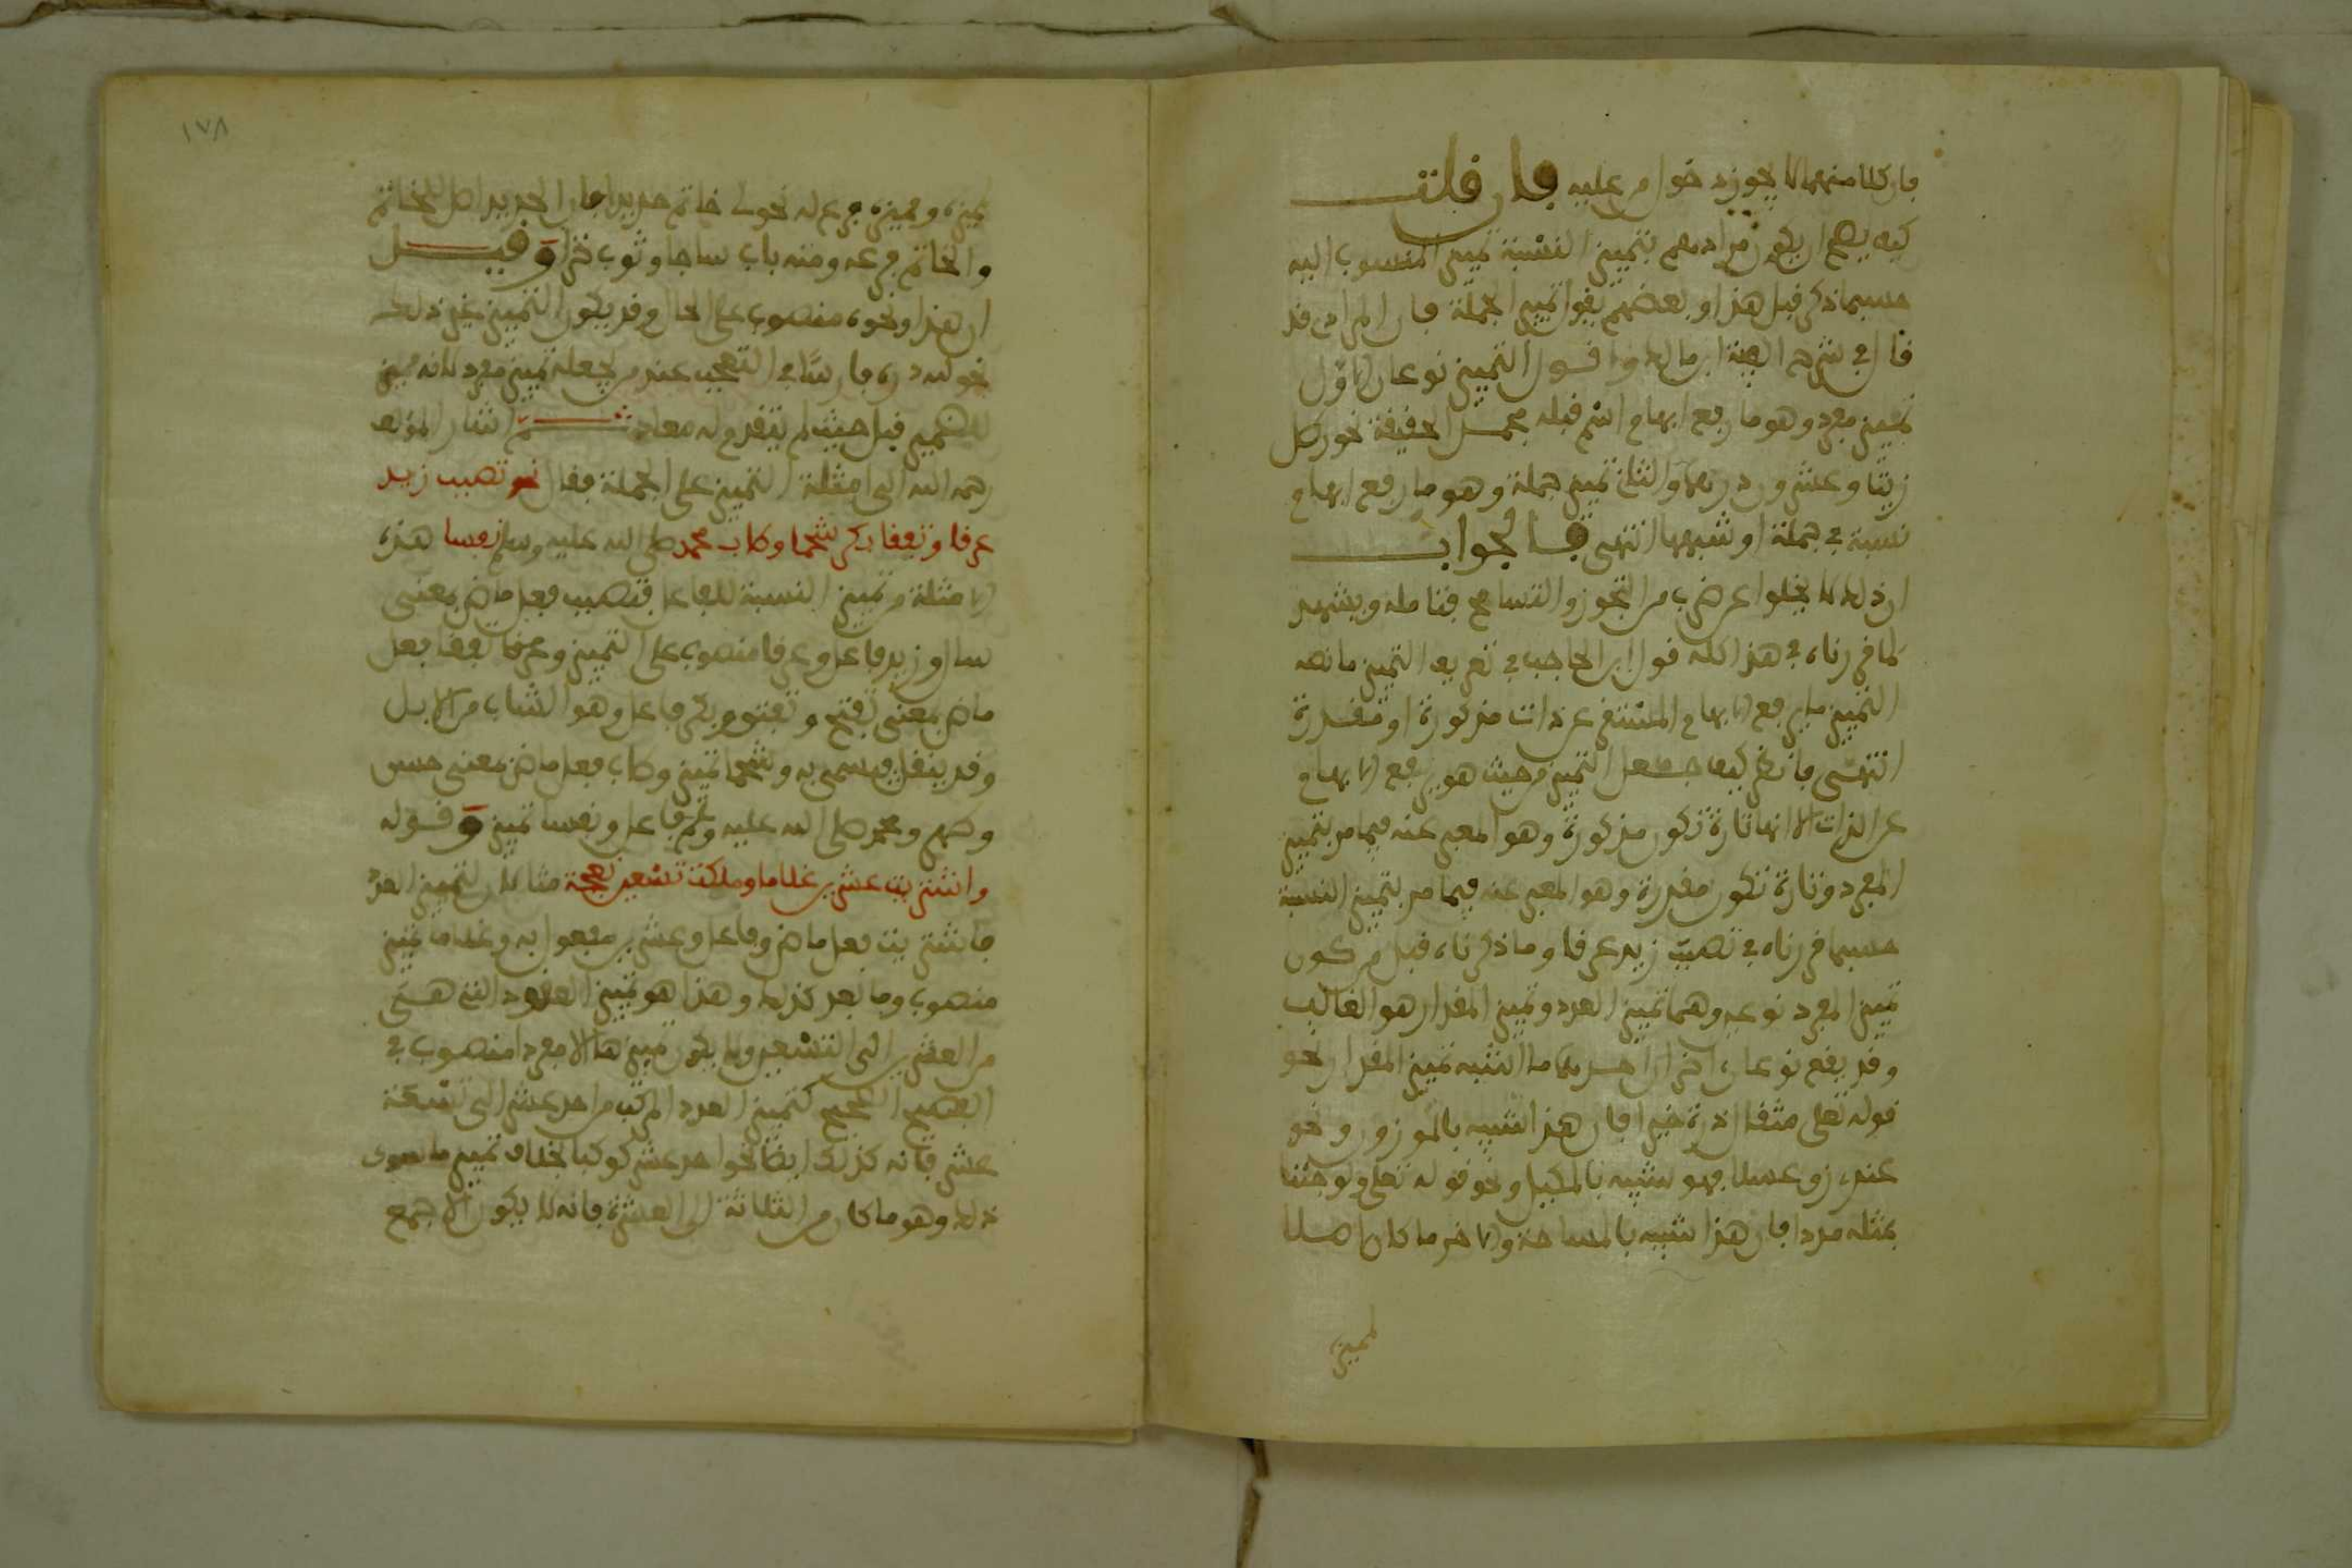 فإن كلا منهما لا يجوز دخول من عليه فإن قلت
كيف يصح ان يكون مرادهم بتمييز النسبة تمييز المنسوب اليه
حسبما ذكر قبل هذا وبعضهم يقول تمييز الجملة فان المرادي قد
قال في شرح الفية ابن مالك ما قسول التمييز نوعان الاول
تمييز مفرد وهو ما رفع ابهام اسم قبله مجمل الحقيقة نحو رطل
زيتا وعشرون درهما والثاني تمييز جملة وهو ما رفع ابهام
نسبة في جملة او شبهها انتهى فالجواب
ان ذلك لا يخلوا عن ضرب من التجوز والتسامح فتامله ويشهد
لما قررناه في هذا كله قول ابن الحاجب في تعريف التمييز ما نصه
التمييز ما يرفع الابهام المستقر عن ذات مذكورة او مقدرة
انتهى فانظر كيف جعل التمييز من حيث هو يرفع الابهام
عن الذات الا انها تارة تكون مذكورة وهو المعبر عنه فيما مر بتمييز
المفرد وتارة تكون مقدرة وهو المعبر عنه فيما مر بتمييز النسبة
حسبما قررناه في تصبب زيد عرقا وما ذكرناه قبل من كون
تمييز المفرد نوعين وهما تمييز العدد وتمييز المقدار هو الغالب
وقد يقع نوعان اخران احدهما ما اشبه تمييز المقدار نحو
قوله تعلى مثقال ذرة خيرا فان هذا شبيه بالموزون ونحو
عندي زق عسلا فهو شبيه بالمكيل ونحو قوله تعلى ولو جئنا
بمثله مددا فان هذا شبيه بالمساحة والاخر ما كان اصلا
لمميزه
١٧٨
لمميزه ومميزه فرع له نحو لي خاتم حديدا فان الحديد اصل للخاتم
والخاتم فرعه ومنه باب ساجا وثوب خزا وقيل
ان هذا ونحوه منصوب على الحال وقد يكون التمييز غير ذلك
نحو لله دره فارسا في التعجب عند من يجعله تمييز مفرد لانه مميز
للضمير قبل حيث لم يتقدم له معاد ثم اشار المؤلف
رحمه الله الى امثلة التمييز على الجملة فقال نحو تصبب زيد
عرقا وتفقا بكر شحما وطاب محمد صلى الله عليه وسلم نفسا هذه
الامثلة من تمييز النسبة للفاعل فتصبب فعل ماض بمعنى
سال وزيد فاعل وعرقا منصوب على التمييز وعرقا تفقا فعل
ماض بمعنى تفتح وتفتق وبكر فاعل وهو الشاب من الابل
وقد ينقل فيسمى به وشحما تمييز وطاب فعل ماض بمعنى حسن
وطهر ومحمد صلى الله عليه وسلم فاعل ونفسا تمييز وقوله
واشتريت عشرين غلاما وملكت تسعين نعجة مثالان لتمييز العدد
فاشتريت فعل ماض وفاعل وعشرين مفعول به وغلاما تمييز
منصوب وما بعد كذلك وهذا هو تمييز العقود التي هي
من العشرين الى التسعين ولا يكون مميزها الا مفردا منصوب في
الفصيح الصحيح كتمييز العدد المركب من احد عشر الى تسعة
عشر فانه كذلك ايضا نحو احد عشر كوكبا بخلاف تمييز ما سوى
ذلك وهو ما كان من الثلاثة الى العشرة فانه لا يكون الا جمع